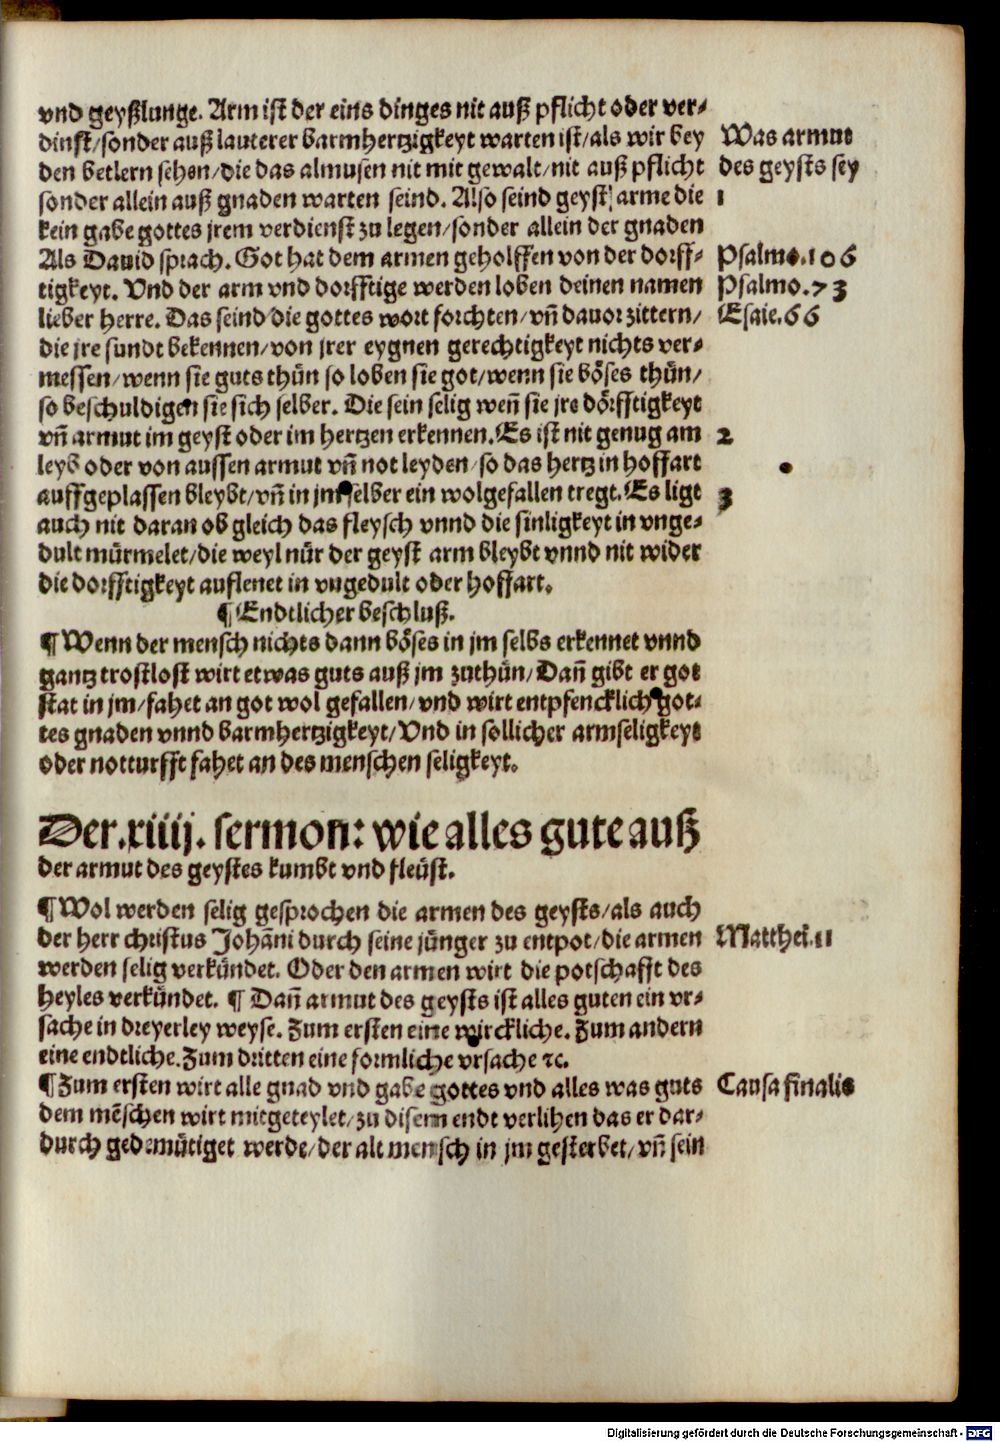 vnd geyßlunge. Arm ist der eins dinges nit auß pflicht oder ver-
dinst/sonder auß lauterer barmhertzigkeyt warten ist/als wir bey
den betlern sehen/die das almusen nit mit gewalt/nit auß pflicht
sonder allein auß gnaden warten seind. Also seind geyst arme die
kein gabe gottes jrem verdienst zu legen/sonder allein der gnaden
Als Dauid sprach. Got hat dem armen geholffen von der dorff-
tigkeyt. Vnd der arm vnd dorfftige werden loben deinen namen
lieber herre. Das seind die gottes wort forchten/vñ dauor zittern/
die jre sundt bekennen/von jrer eygnen gerechtigkeyt nichts ver-
messen/wenn sie guts thün so loben sie got/wenn sie böses thün/
so beschuldigen sie sich selber. Die sein selig weñ sie jre dörfftigkeyt
vñ armut im geyst oder im hertzen erkennen. Es ist nit genug am
leyb oder von aussen armut vñ not leyden/so das hertz in hoffart
auffgeplassen bleybt/vñ in jm selber ein wolgefallen tregt. Es ligt
auch nit daran ob gleich das fleysch vnnd die sinligkeyt in vnge-
dult mürmelet/die weyl nür der geyst arm bleybt vnnd nit wider
die dorfftigkeyt auflenet in vngedult oder hoffart.
¶ Endtlicher beschluß.
¶ Wenn der mensch nichts dann böses in jm selbs erkennet vnnd
gantz trostlost wirt etwas guts auß jm zuthün/Dañ gibt er got
stat in jm/fahet an got wol gefallen/vnd wirt entpfencklich got-
tes gnaden vnnd barmhertzigkeyt/Vnd in sollicher armseligkeyt
oder notturfft fahet an des menschen seligkeyt.
Der.xiiij. sermon: wie alles gute auß
der armut des geystes kumbt vnd fleüst.
¶ Wol werden selig gesprochen die armen des geysts/als auch
der herr christus Johãni durch seine jünger zu entpot/die armen
werden selig verkündet. Oder den armen wirt die potschafft des
heyles verkündet. ¶ Dañ armut des geysts ist alles guten ein vr-
sache in dreyerley weyse. Zum ersten eine wirckliche. Zum andern
eine endtliche. Zum dritten eine formliche vrsache ꝛc.
¶ Zum ersten wirt alle gnad vnd gabe gottes vnd alles was guts
dem mẽschen wirt mitgeteylet/zu disem endt verlihen das er dar-
durch gedemütiget werde/der alt mensch in jm gesterbet/vñ sein
Was armut
des geysts sey
1
Psalmo.106
Psalmo.73
Esaie.66
2
3
Matthei.11
Causa finalis
Digitalisierung gefördert durch die Deutsche Forschungsgemeinschaft - DFG